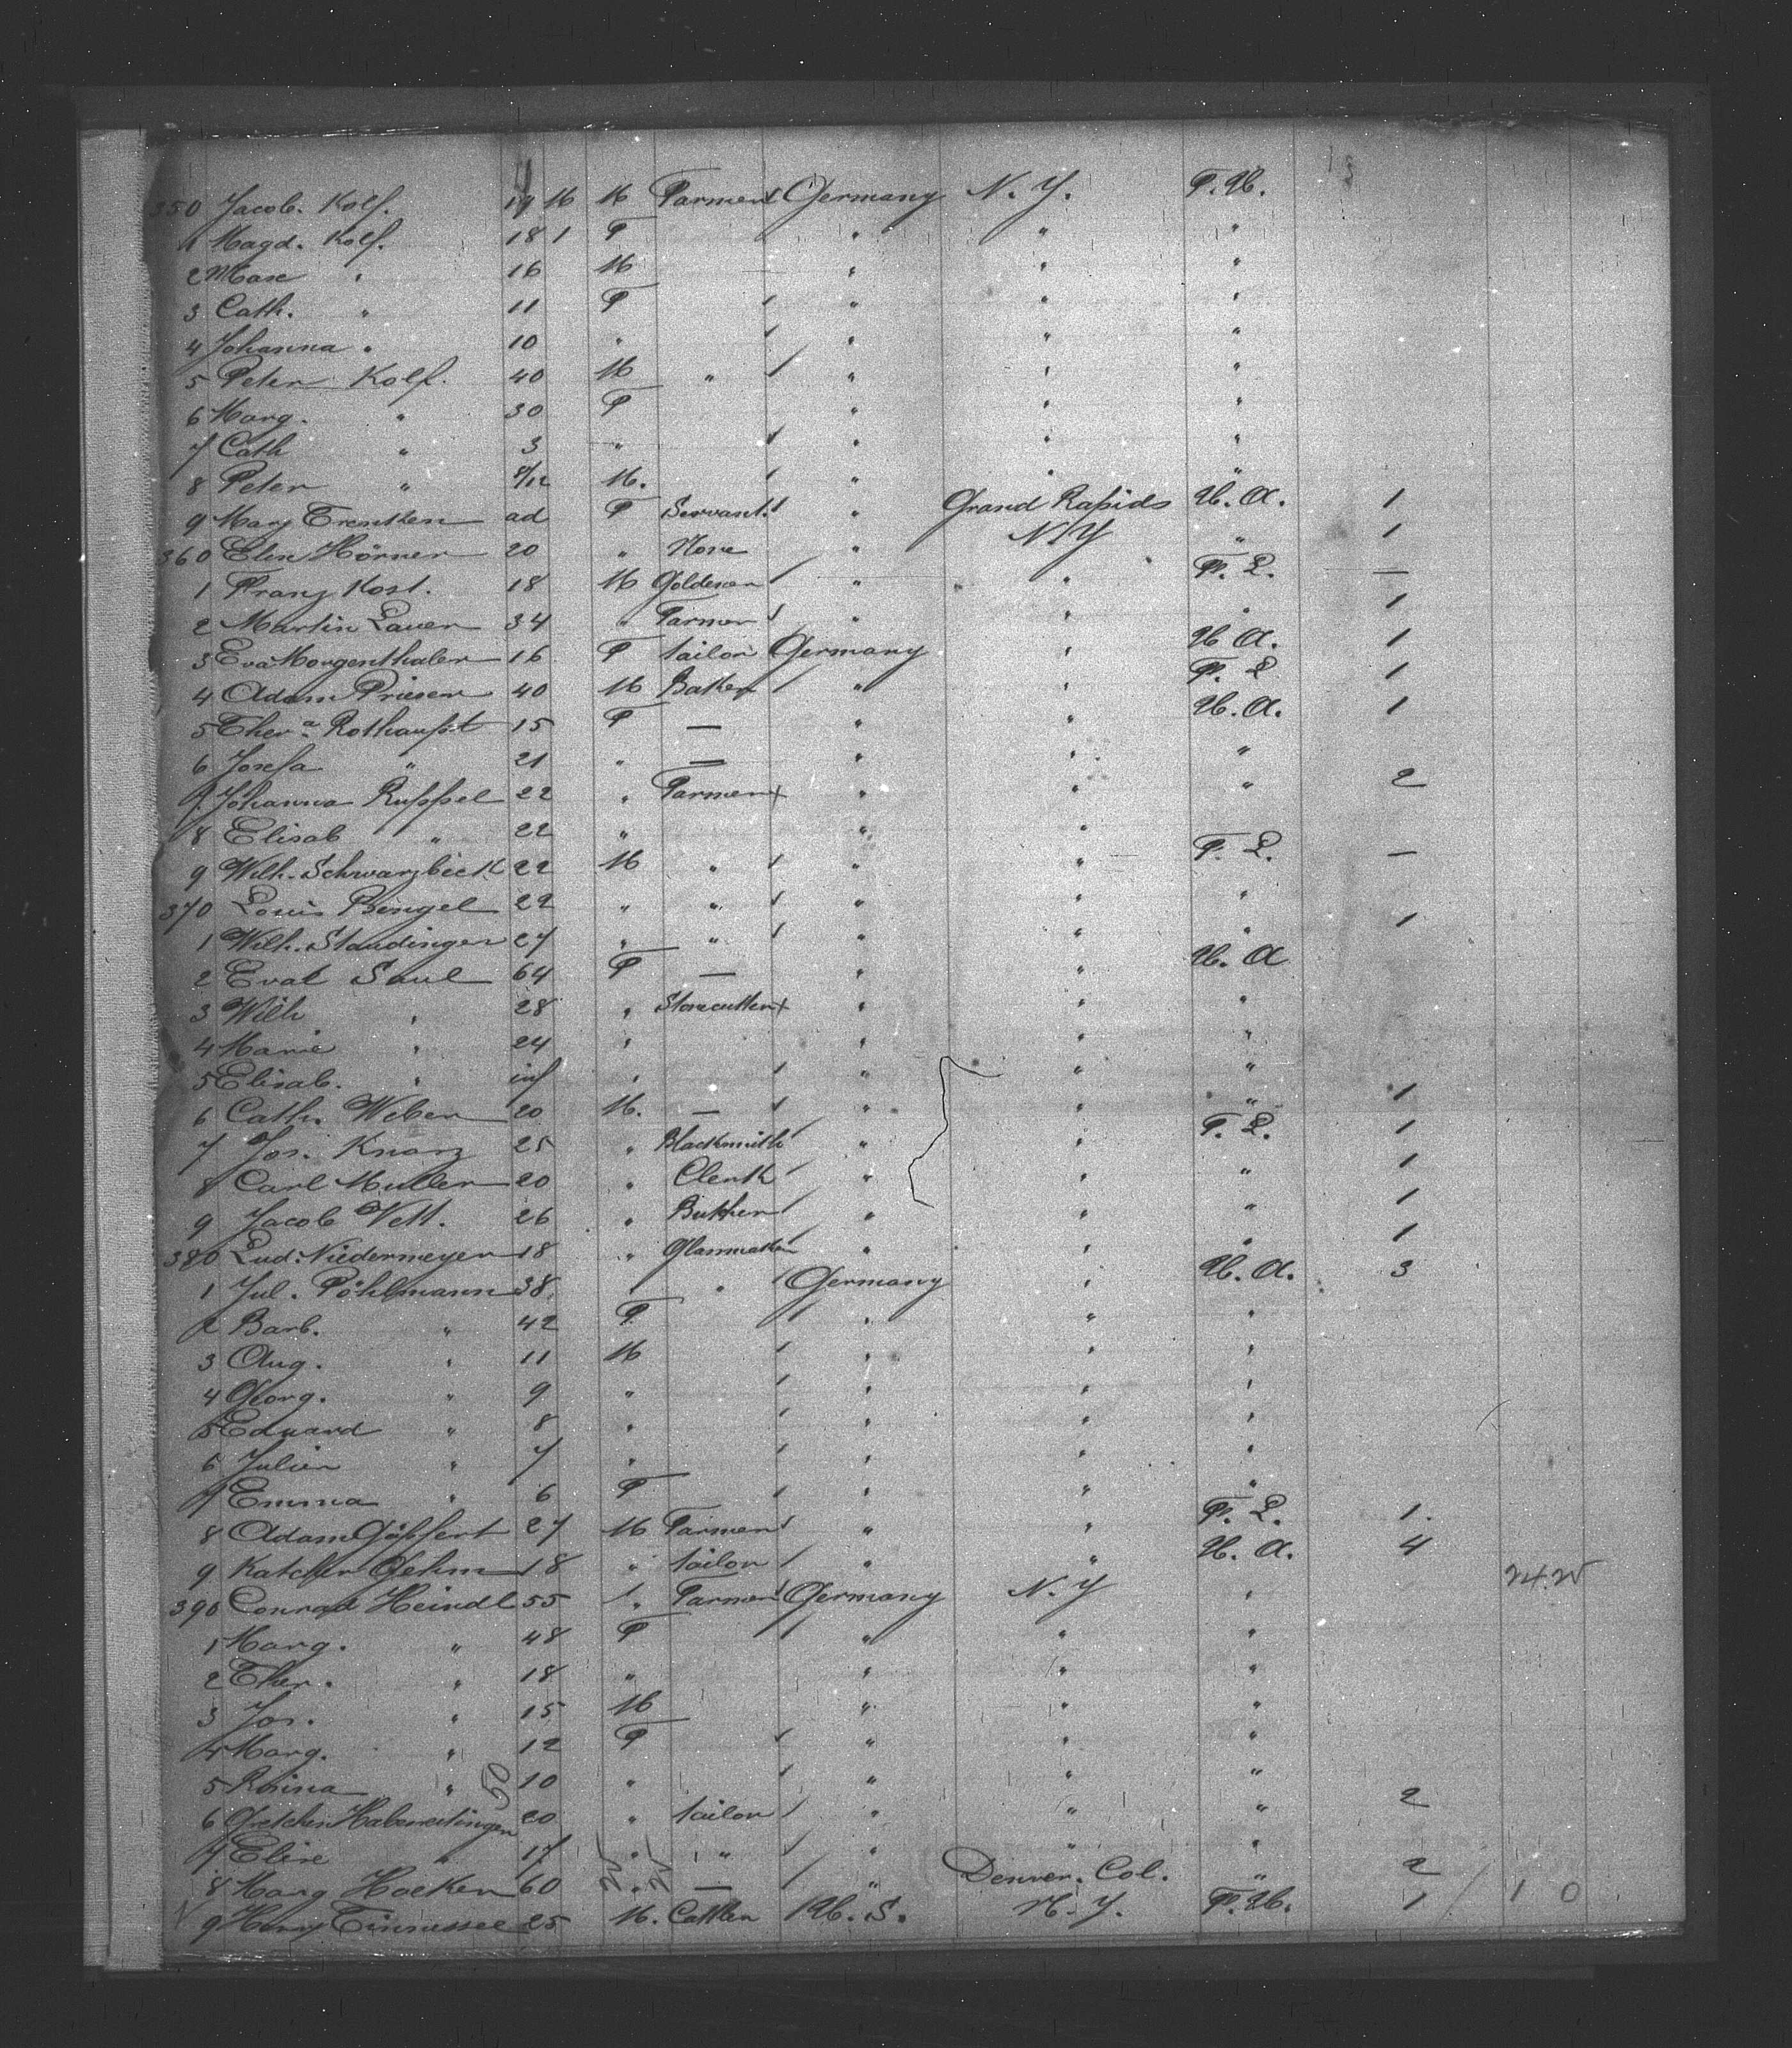 350 Jacob. Kolf. 19 M M Farmer Germany N. Y. F. U.
1 Magd. Kolf. 18 1 F " " "
2 Max " 16 M " " "
3 Cath. " 11 F " " "
4 Johanna " 10 " " " "
5 Peter Kolf. 40 M " " " "
6 Marg. " 30 F " " "
7 Cath " 3 " " " "
8 Peter " 8/12 M. " " "
9 Mary Trentken ad F Servant. " Grand Rapids U. A. 1
360 Elise Hörner 20 " None " N Y " 1
1 Franz Kost. 18 M " " F. L. —
2 Martin Lauer 34 " Farmer " " " 1
3 Eva Morgenthaler 16 F tailor Germany " U. A. 1
4 Adam Prieser 40 M Baker " " F. L 1
5 Ther.a Rothaupt 15 F — " " U. A. 1
6 Josefa " 21 " — " " "
7. Johanna Ruppel 22 " Farmer " " " 2
8 Elisab " 22 " " "
9 Wilh. Schwarzbeck 22 M " " " F. L. —
370 Louis Bengel 22 " " " " "
1 Wilh. Staudinger 27 " " " " " 1
2 Eval Saul 64 F — " " U. A
3 Wilh " 28 " Stonecutter " " "
4 Marie " 24 " " " "
5 Elisab. " inf " " " "
6 Cath. Weber 20 M. — " " " 1
7 Jos. Knarz 25 " Blacksmith " " F. L. 1
8 Carl Muller 20 " Clerk " " " 1
9 Jacob Vett. 26 " Butcher " " " 1
380 Lud. Niedermeyer 18 " Glasmaker " " " 1
1 Jul. Pöhlmann 38 " " Germany " U. A. 3
2 Barb. " 42 F " " "
3 Aug. " 11 M " " "
4 Georg. " 9 " " " "
5 Eduard " 8 " " " "
6 Julier " 7 " " " "
7 Emma " 6 F " " "
8 Adam Göpfert 27 M Farmer " " F. L. 1.
9 Gehm 18 " tailor " " U. A. 4
24.25
390 Conrad Heindl 55 " Farmer Germany N. Y "
1 Marg. " 48 F " " "
2 Ther. " 18 " " " "
3 Jos. " 15 M " " "
4 Marg. " 12 F " " "
5 Rosina " 10 " " " "
50
6 Gretchen 20 " tailor " " " 2
7 Elise " 17 " " " " "
8 Marg Hacker 60 " — " Denver. Col. " 2
9 Harry 25 M. Cattler U. S. N. Y. F. U. 1 1 0